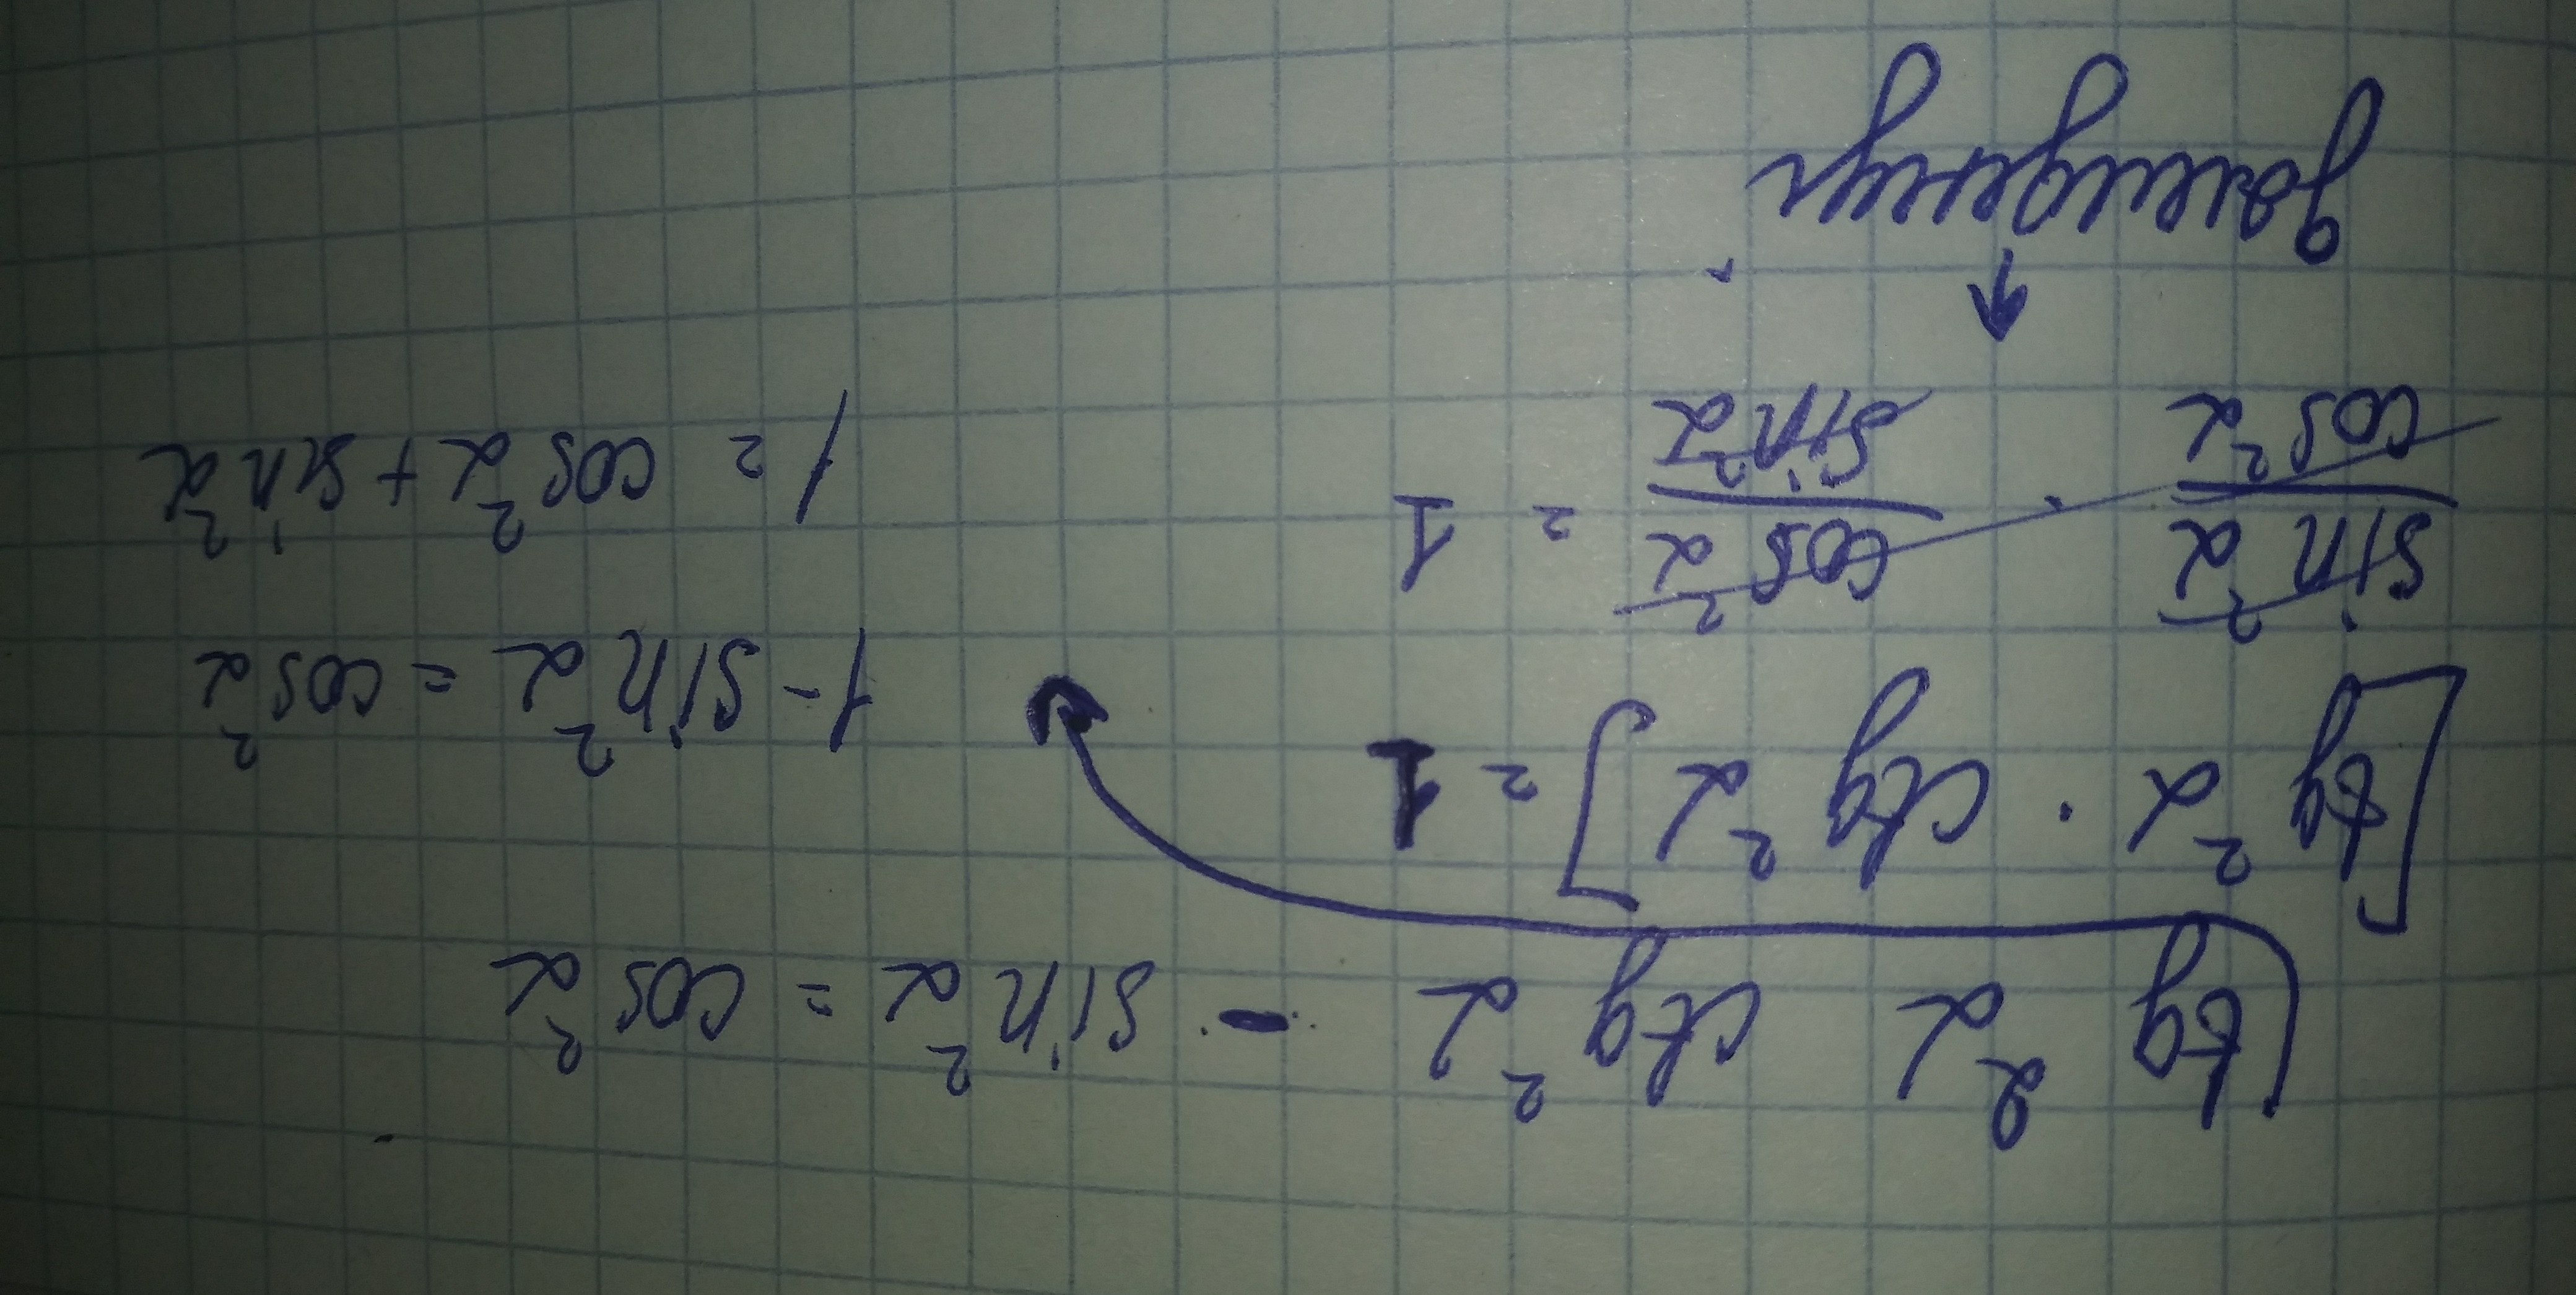 tg²α ctg²α - sin²α = cos²α
[tg²α · ctg²α] = 1
1 - sin²α = cos²α
sin²α / cos²α · cos²α / sin²α = 1
1 = cos²α + sin²α